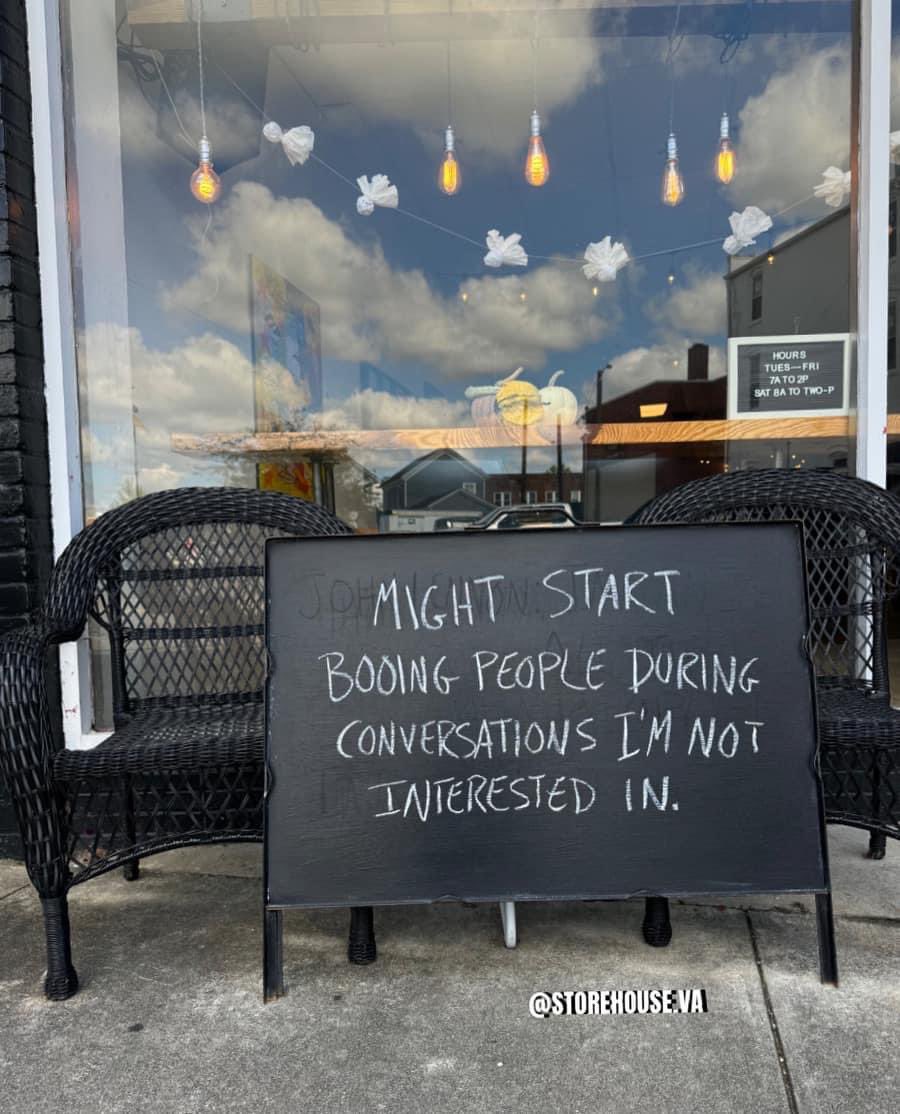 HOURS
TUES—FRI
7A TO 2P
SAT 8A TO TWO-P
MIGHT START
BOOING PEOPLE DURING
CONVERSATIONS I'M NOT
INTERESTED IN.
@STOREHOUSE.VA